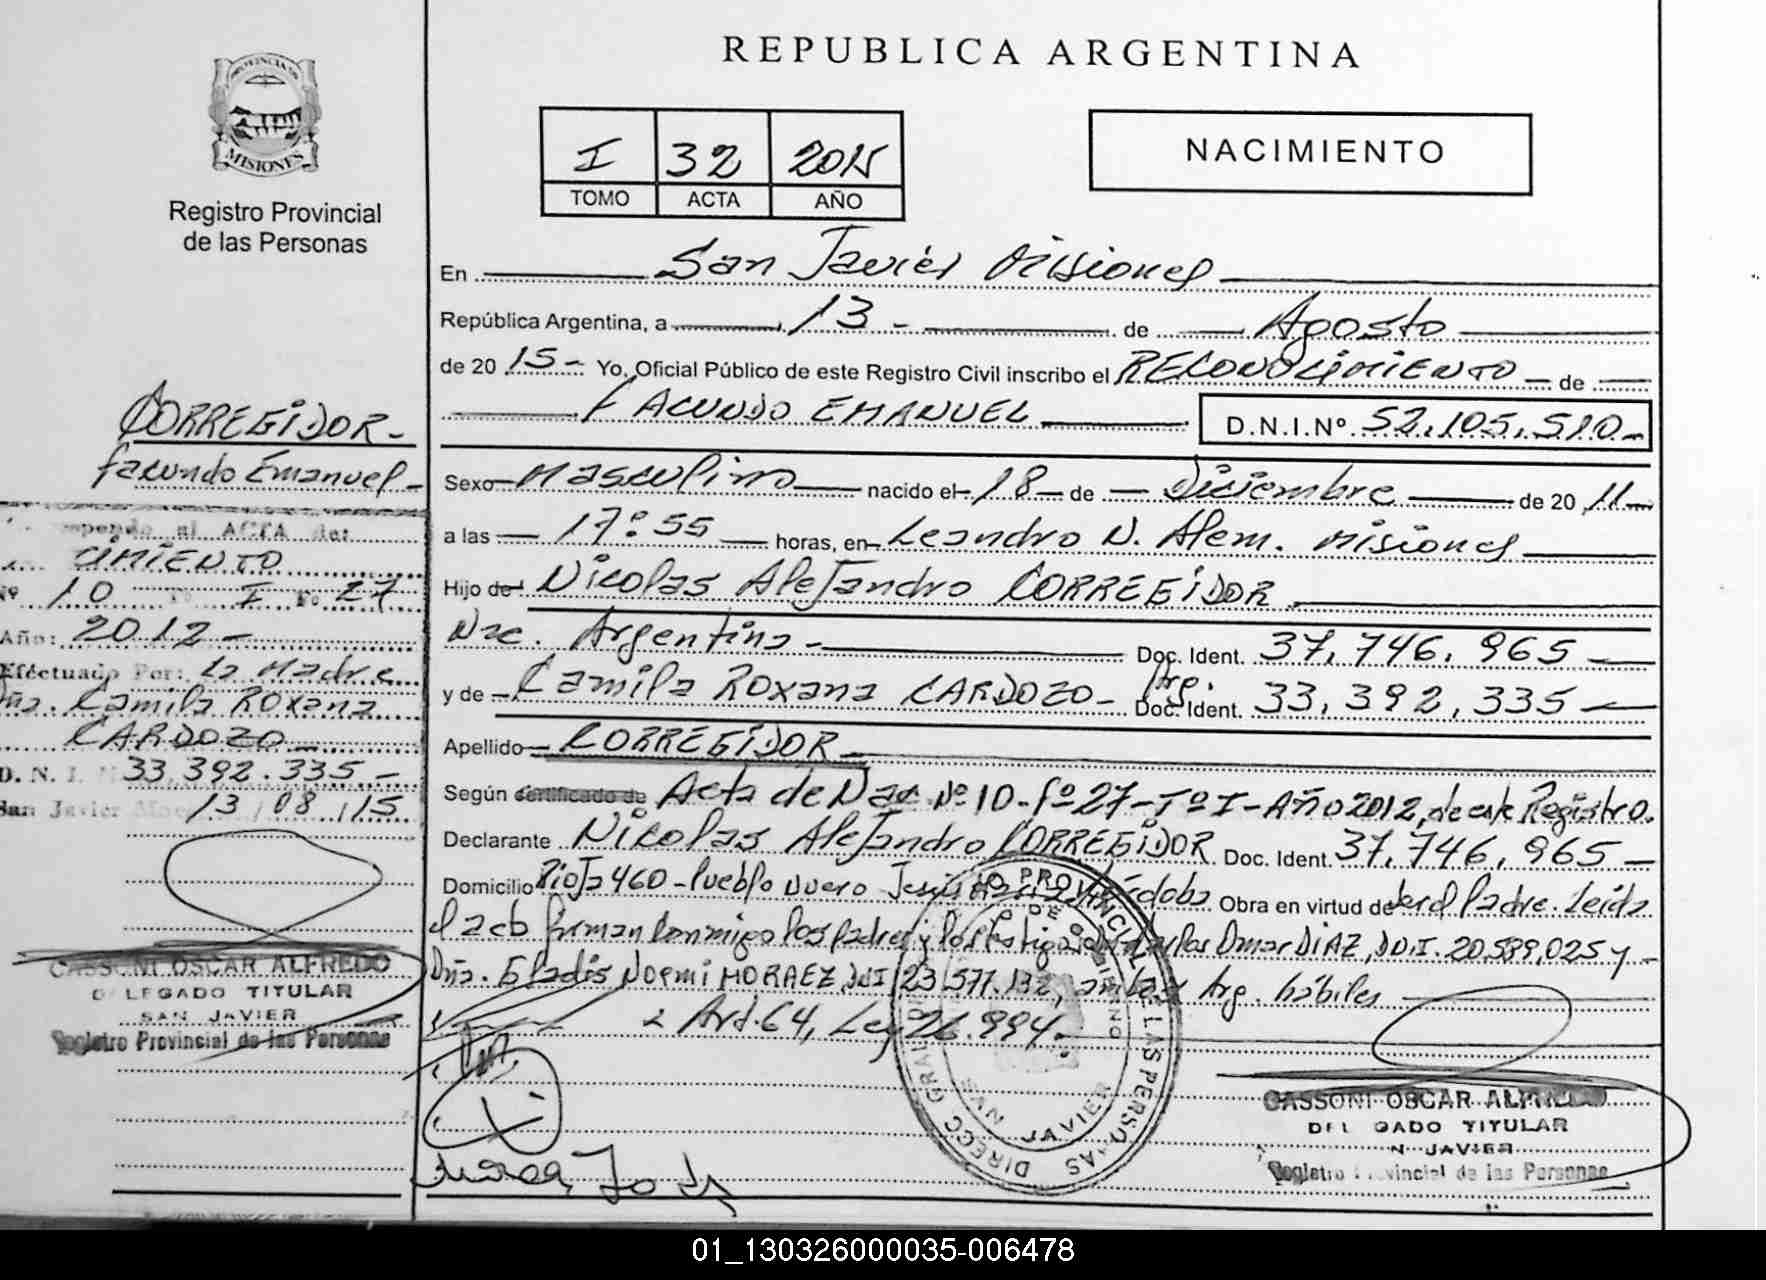 REPUBLICA ARGENTINA
PROVINCIA DE
MISIONES
Registro Provincial
de las Personas
I 32 2015
TOMO ACTA AÑO
NACIMIENTO
En San Javier Misiones
República Argentina, a 13 - de Agosto
de 20 15 - Yo, Oficial Público de este Registro Civil inscribo el RECONOCIMIENTO - de
FACUNDO EMANUEL D.N.I.Nº 52,105,510-
Sexo Masculino nacido el 18 de Diciembre de 20 11
a las 17:55 horas, en Leandro N. Alem. Misiones
Hijo de Nicolas Alejandro CORREGIDOR
Nac. Argentina - Doc. Ident. 37,746,965
y de Camila Roxana CARDOZO - Arg. Doc. Ident. 33,392,335
Apellido CORREGIDOR
Según certificado de Acta de Nac Nº 10 - fº 27 - Tº I - Año 2012, de este Registro.
Declarante Nicolas Alejandro CORREGIDOR Doc. Ident. 37,746,965
Domicilio Rioja 460 - Pueblo Nuevo Jesús María Córdoba Obra en virtud de ser el Padre. Leida
el acta firman conmigo los padres y los testigos Omar DIAZ, D.N.I. 20.589.025 y
Dña. Gladis Noemi MORAEZ, DNI 23.577.132, ambos Arg. hábiles
Art. 64, Ley 26.994.
CORREGIDOR -
Facundo Emanuel -
al ACTA de:
CIMIENTO
Nº 10 Tº I Fº 27
Año: 2012 -
Efectuado Por: La Madre
Dña. Camila Roxana
CARDOZO
D. N. I. Nº 33,392.335 -
San Javier 13 / 08 / 15
CASSONI OSCAR ALFREDO
DELEGADO TITULAR
SAN JAVIER
Registro Provincial de las Personas
SAN JAVIER
CASSONI OSCAR ALFREDO
DEL GADO TITULAR
N JAVIER
Registro Provincial de las Personas
01_130326000035-006478